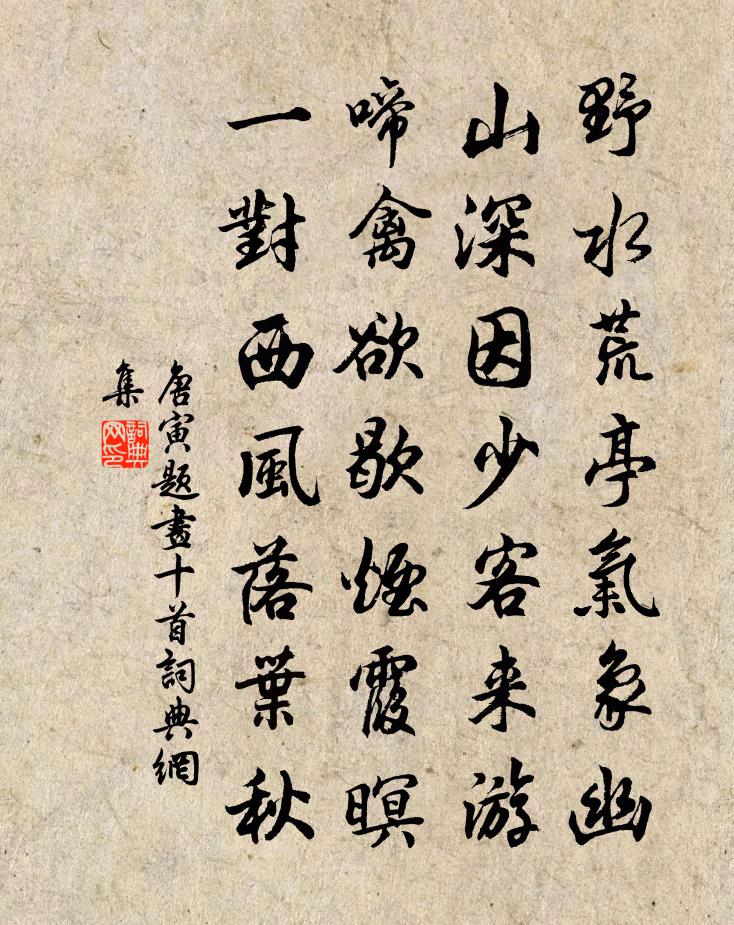 野水荒亭氣象幽
山深因少客来游
啼禽欲歇煙霞暝
一對西風落葉秋
唐寅題畫十首詞典網
集
詞典
网印